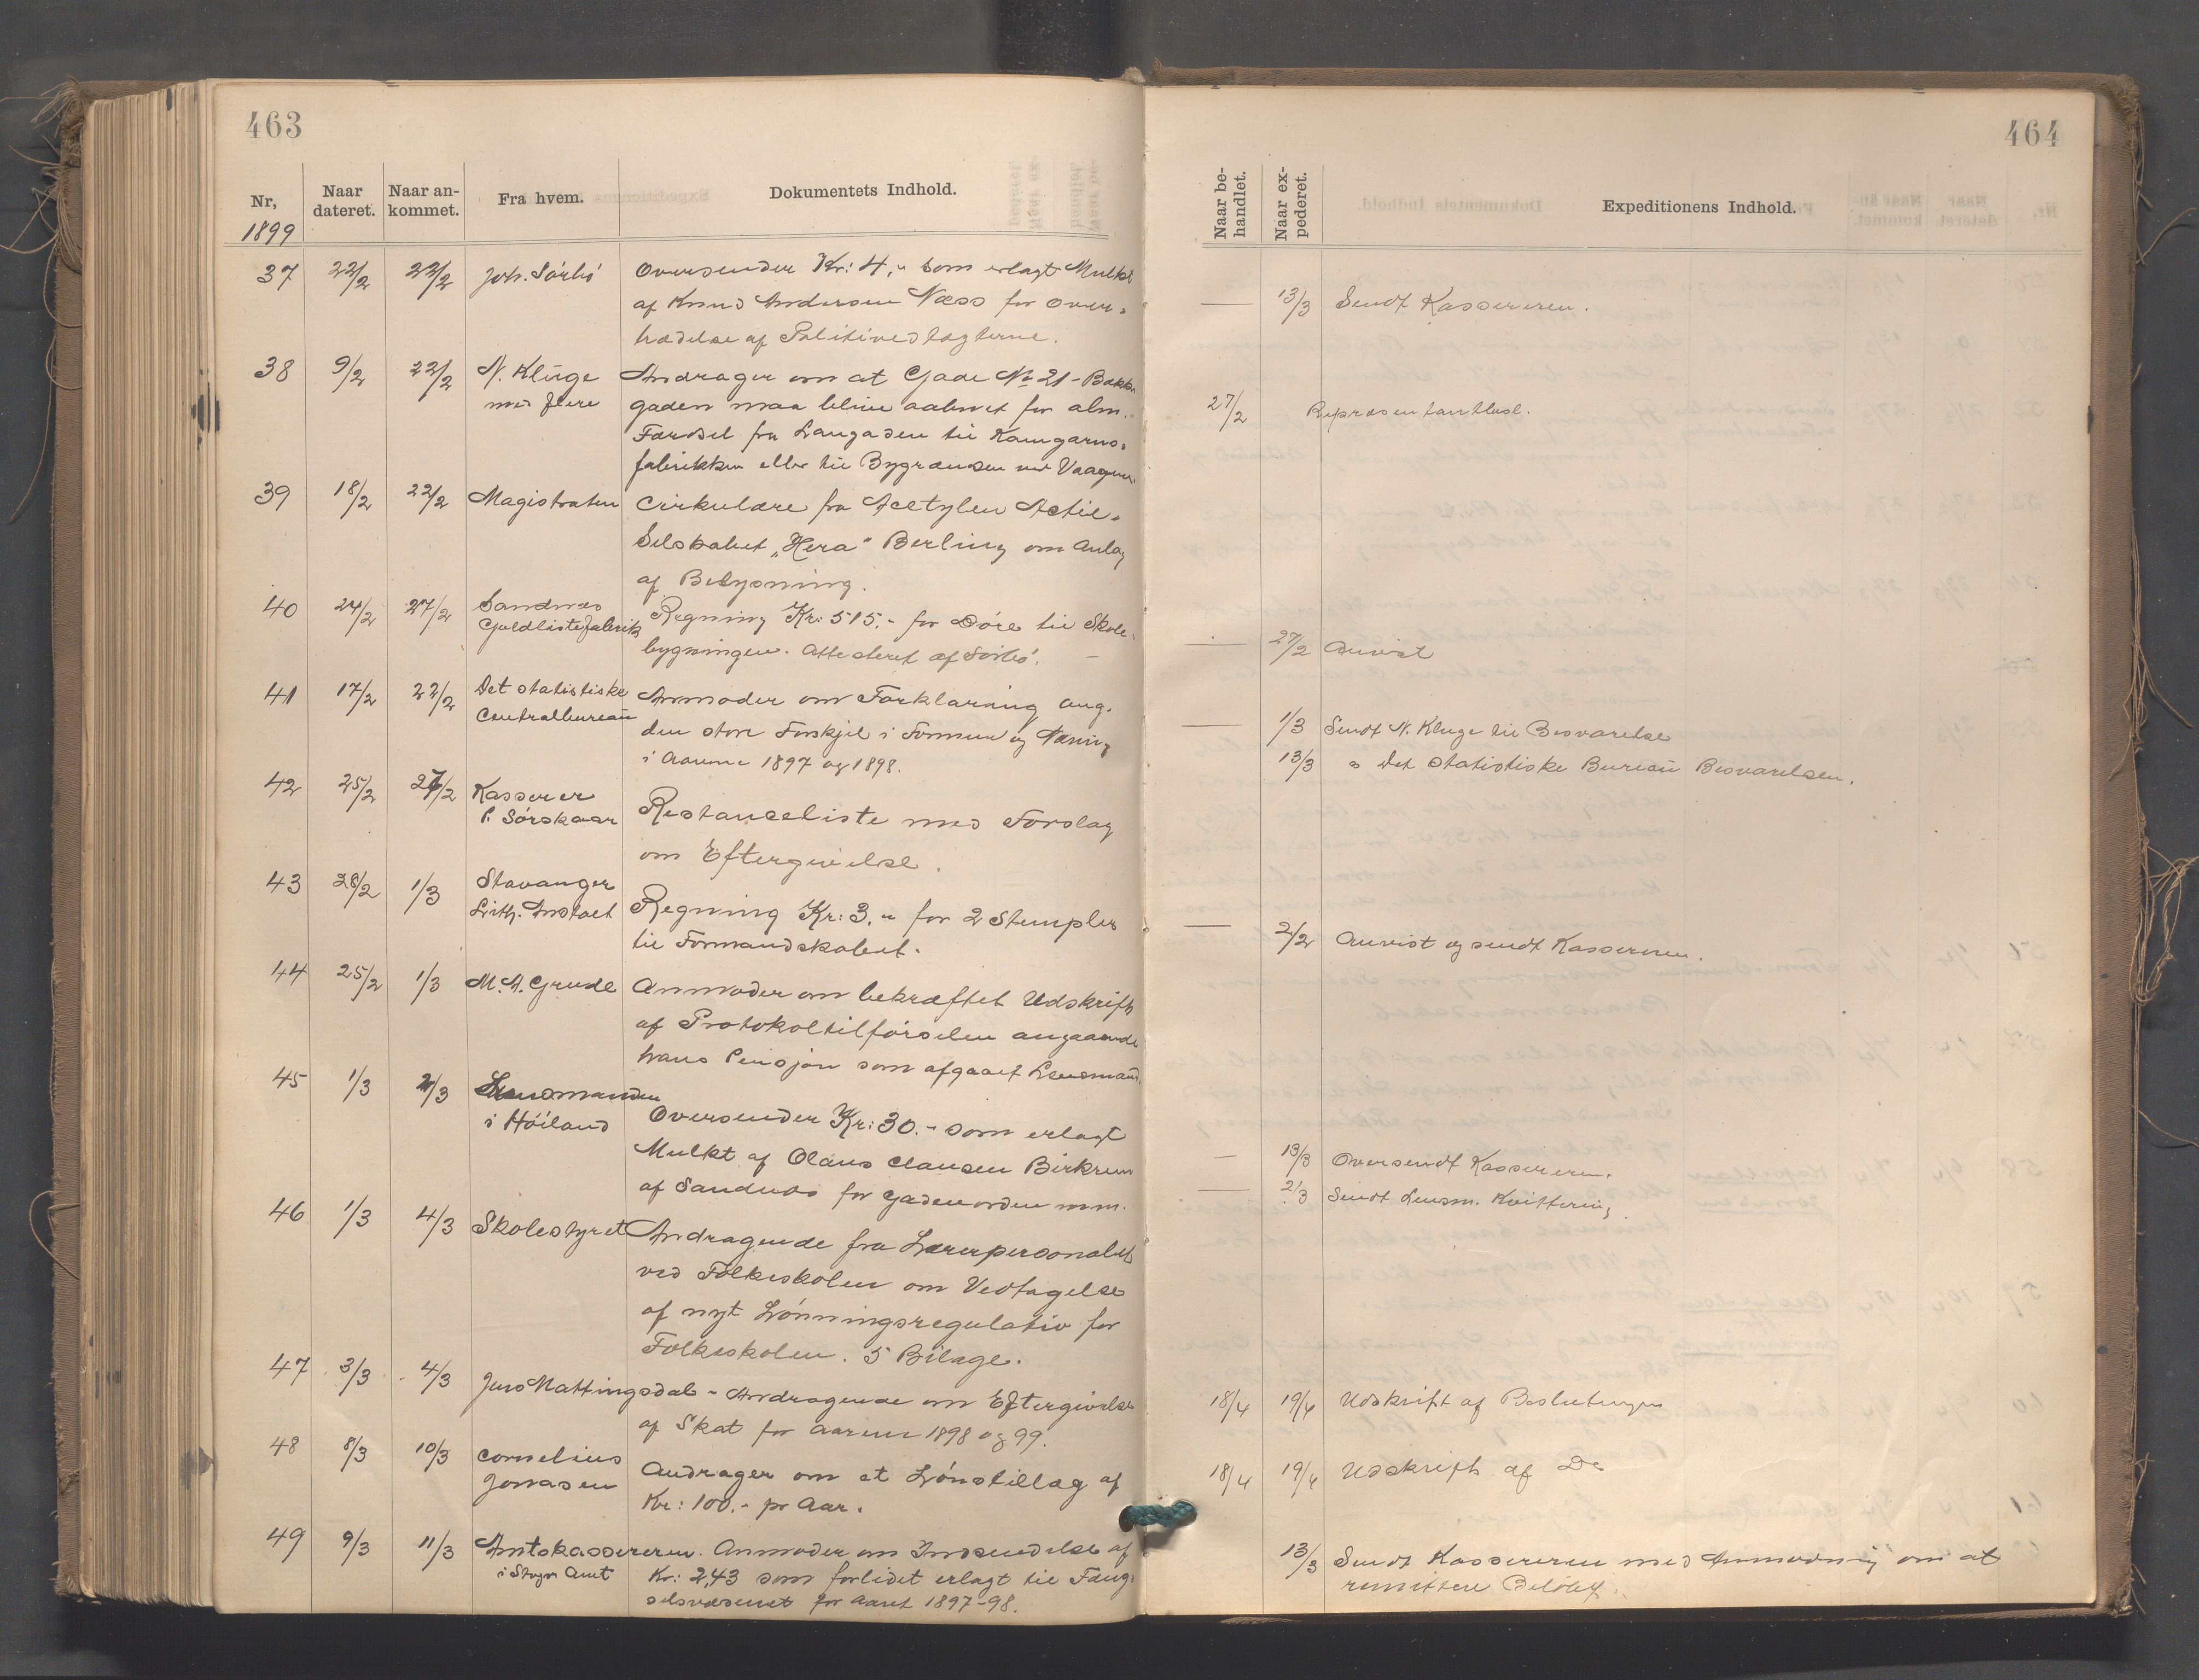 463
Nr,
Naar dateret.
Naar ankommet.
Fra hvem.
Dokumentets Indhold.
1899
37 22/2 22/2 Joh. Sörbö Oversender Kr: 4,- som erlagt Mulkt
af Knud Andersen Næss for Over-
trædelse af Politivedtægterne.
38 9/2 22/2 N. Kluge Andrager om at Gade No 21 - Bakke
med flere gaden maa blive aabnet for alm.
Færdsel fra Langgaden til Kamgarns-
fabrikken eller til Bygrændsen ved Vaagen.
39 18/2 22/2 Magistraten Cirkulære fra Acetylen Actie-
Selskabet "Hera" Berling om Anlæg
af Belysning.
40 24/2 27/2 Sandnæs Regning Kr: 515.- for Döre til Skole-
Guldlistefabrik bygningen. Attesteret af Sörbö.
41 17/2 22/2 Det statistiske Anmoder om Forklaring ang.
Centralbureau den store Forskjel i Formue og Næring
i Aarene 1897 og 1898.
42 25/2 27/2 Kasserer
P. Sörskaar Restanceliste med Forslag
om Eftergivelse.
43 28/2 1/3 Stavanger
Lith. Anstalt Regning Kr: 3,- for 2 Stempler
til Formandskabet.
44 25/2 1/3 M. A. Grude Anmoder om bekræftet Udskrift
af Protokoltilförselen angaaende
hans Pensjon som afgaaet Lensmand.
45 1/3 2/3 Lensmanden
i Höiland Oversender Kr: 30.- som erlagt
Mulkt af Olaus Clausen Birkrem
af Sandnæs for Gadeuorden m.m.
46 1/3 4/3 Skolestyret Andragende fra Lærerpersonalet
ved Folkeskolen om Vedtagelse
af nyt Lönningsregulativ for
Folkeskolen. 5 Bilage.
47 3/3 4/3 Jens Mattingsdal - Andragende om Eftergivelse
af Skat for Aarene 1898 og 99.
48 8/3 10/3 Cornelius
Jonasen Andrager om et Lönstillæg af
Kr: 100.- pr Aar.
49 9/3 11/3 Amtskassereren Anmoder om Indsendelse af
i Stvgr Amt Kr: 2,43 som forlidet erlagt til Fæng-
selsvæsenet for Aaret 1897-98.
464
Naar behandlet.
Naar expederet.
Expeditionens Indhold.
— 13/3 Sendt Kassereren.
27/2 Repræsentantbesl.
— 27/2 Anvist
— 1/3 Sendt N. Kluge til Besvarelse
13/3 " Det statistiske Bureau Besvarelsen.
— 2/2 Anvist og sendt Kassereren.
— 13/3 Oversendt Kassereren.
— 2/3 Sendt Lensm. Kvittering.
18/4 19/4 Udskrift af Beslutningen
18/4 19/4 Udskrift af Do
13/3 Sendt Kassereren med Anmodning om at
remittere Belöbet.